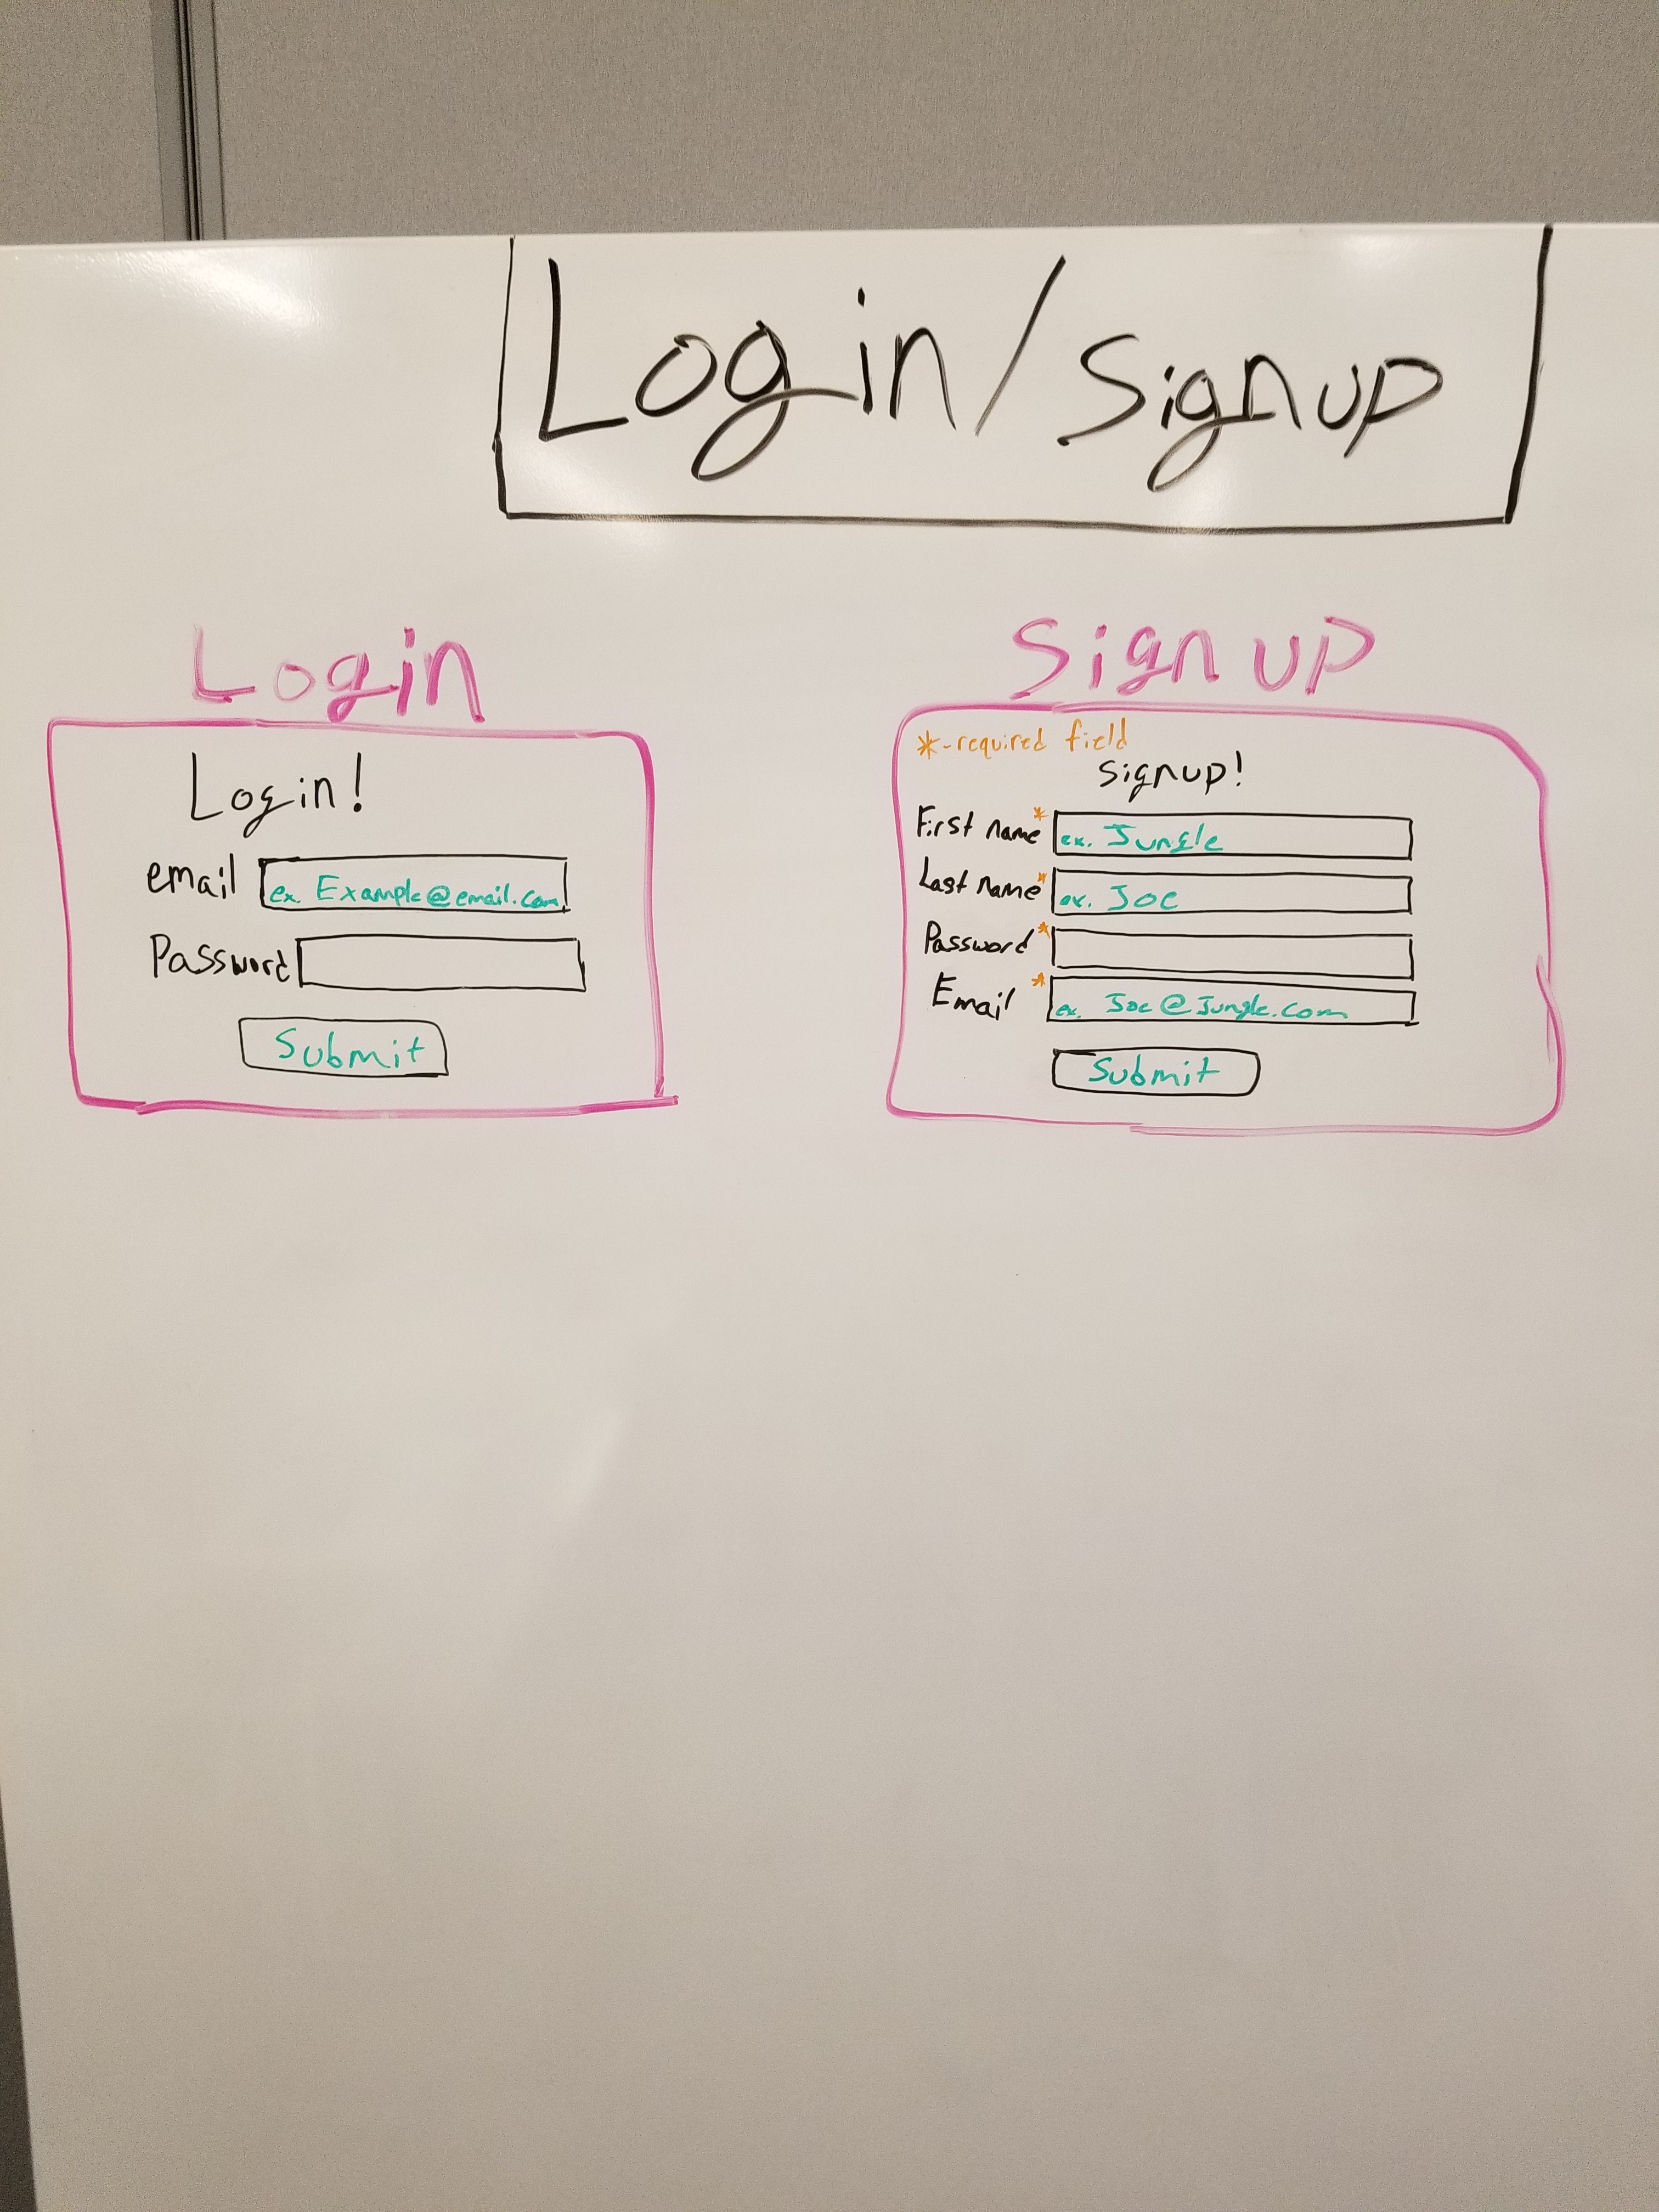 Login/Signup
Login
Login!
email ex. Example@email.com
Password
Submit
Signup
*-required field
Signup!
First name* ex. Jungle
Last name* ex. Joe
Password*
Email* ex. Joe@Jungle.com
Submit